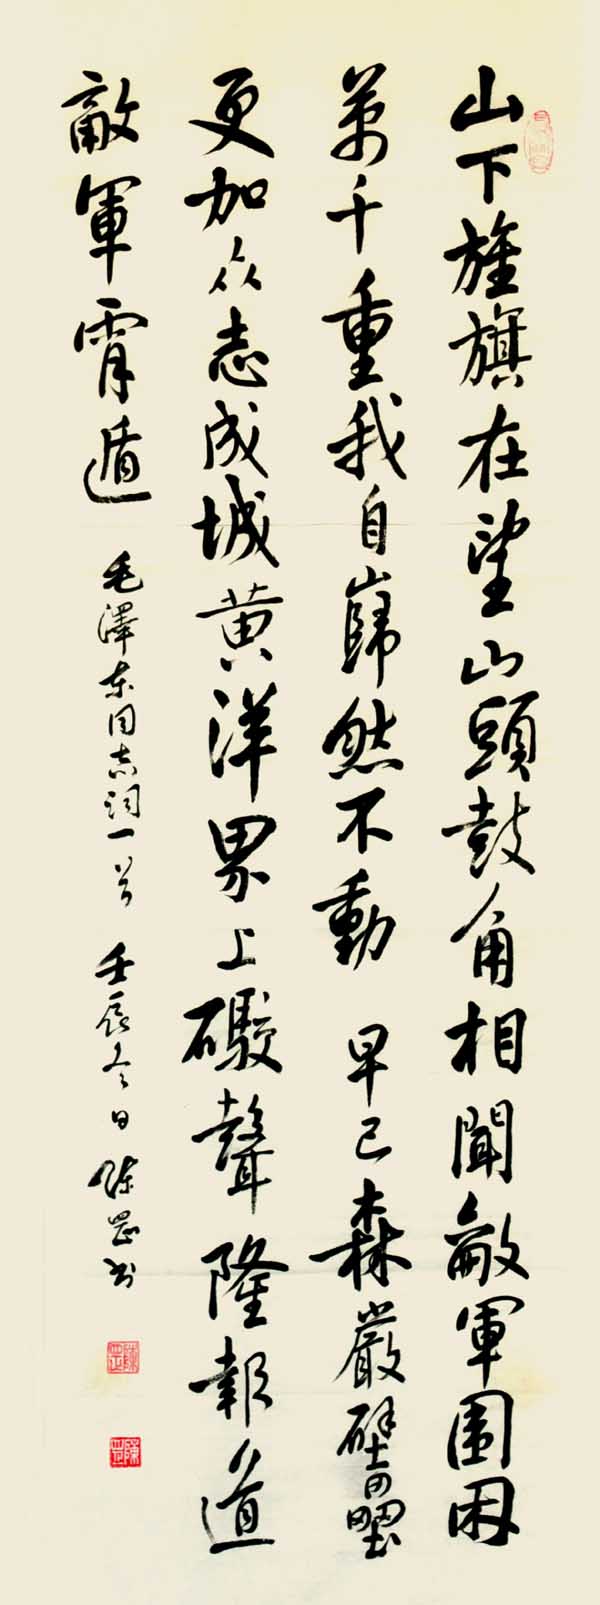 山下旌旗在望山頭鼓角相聞敵軍围困
萬千重我自巋然不動 早已森嚴壁壘
更加众志成城黄洋界上礮聲隆報道
敵軍宵遁
毛澤东同志词一首 壬辰冬日 陈罡书